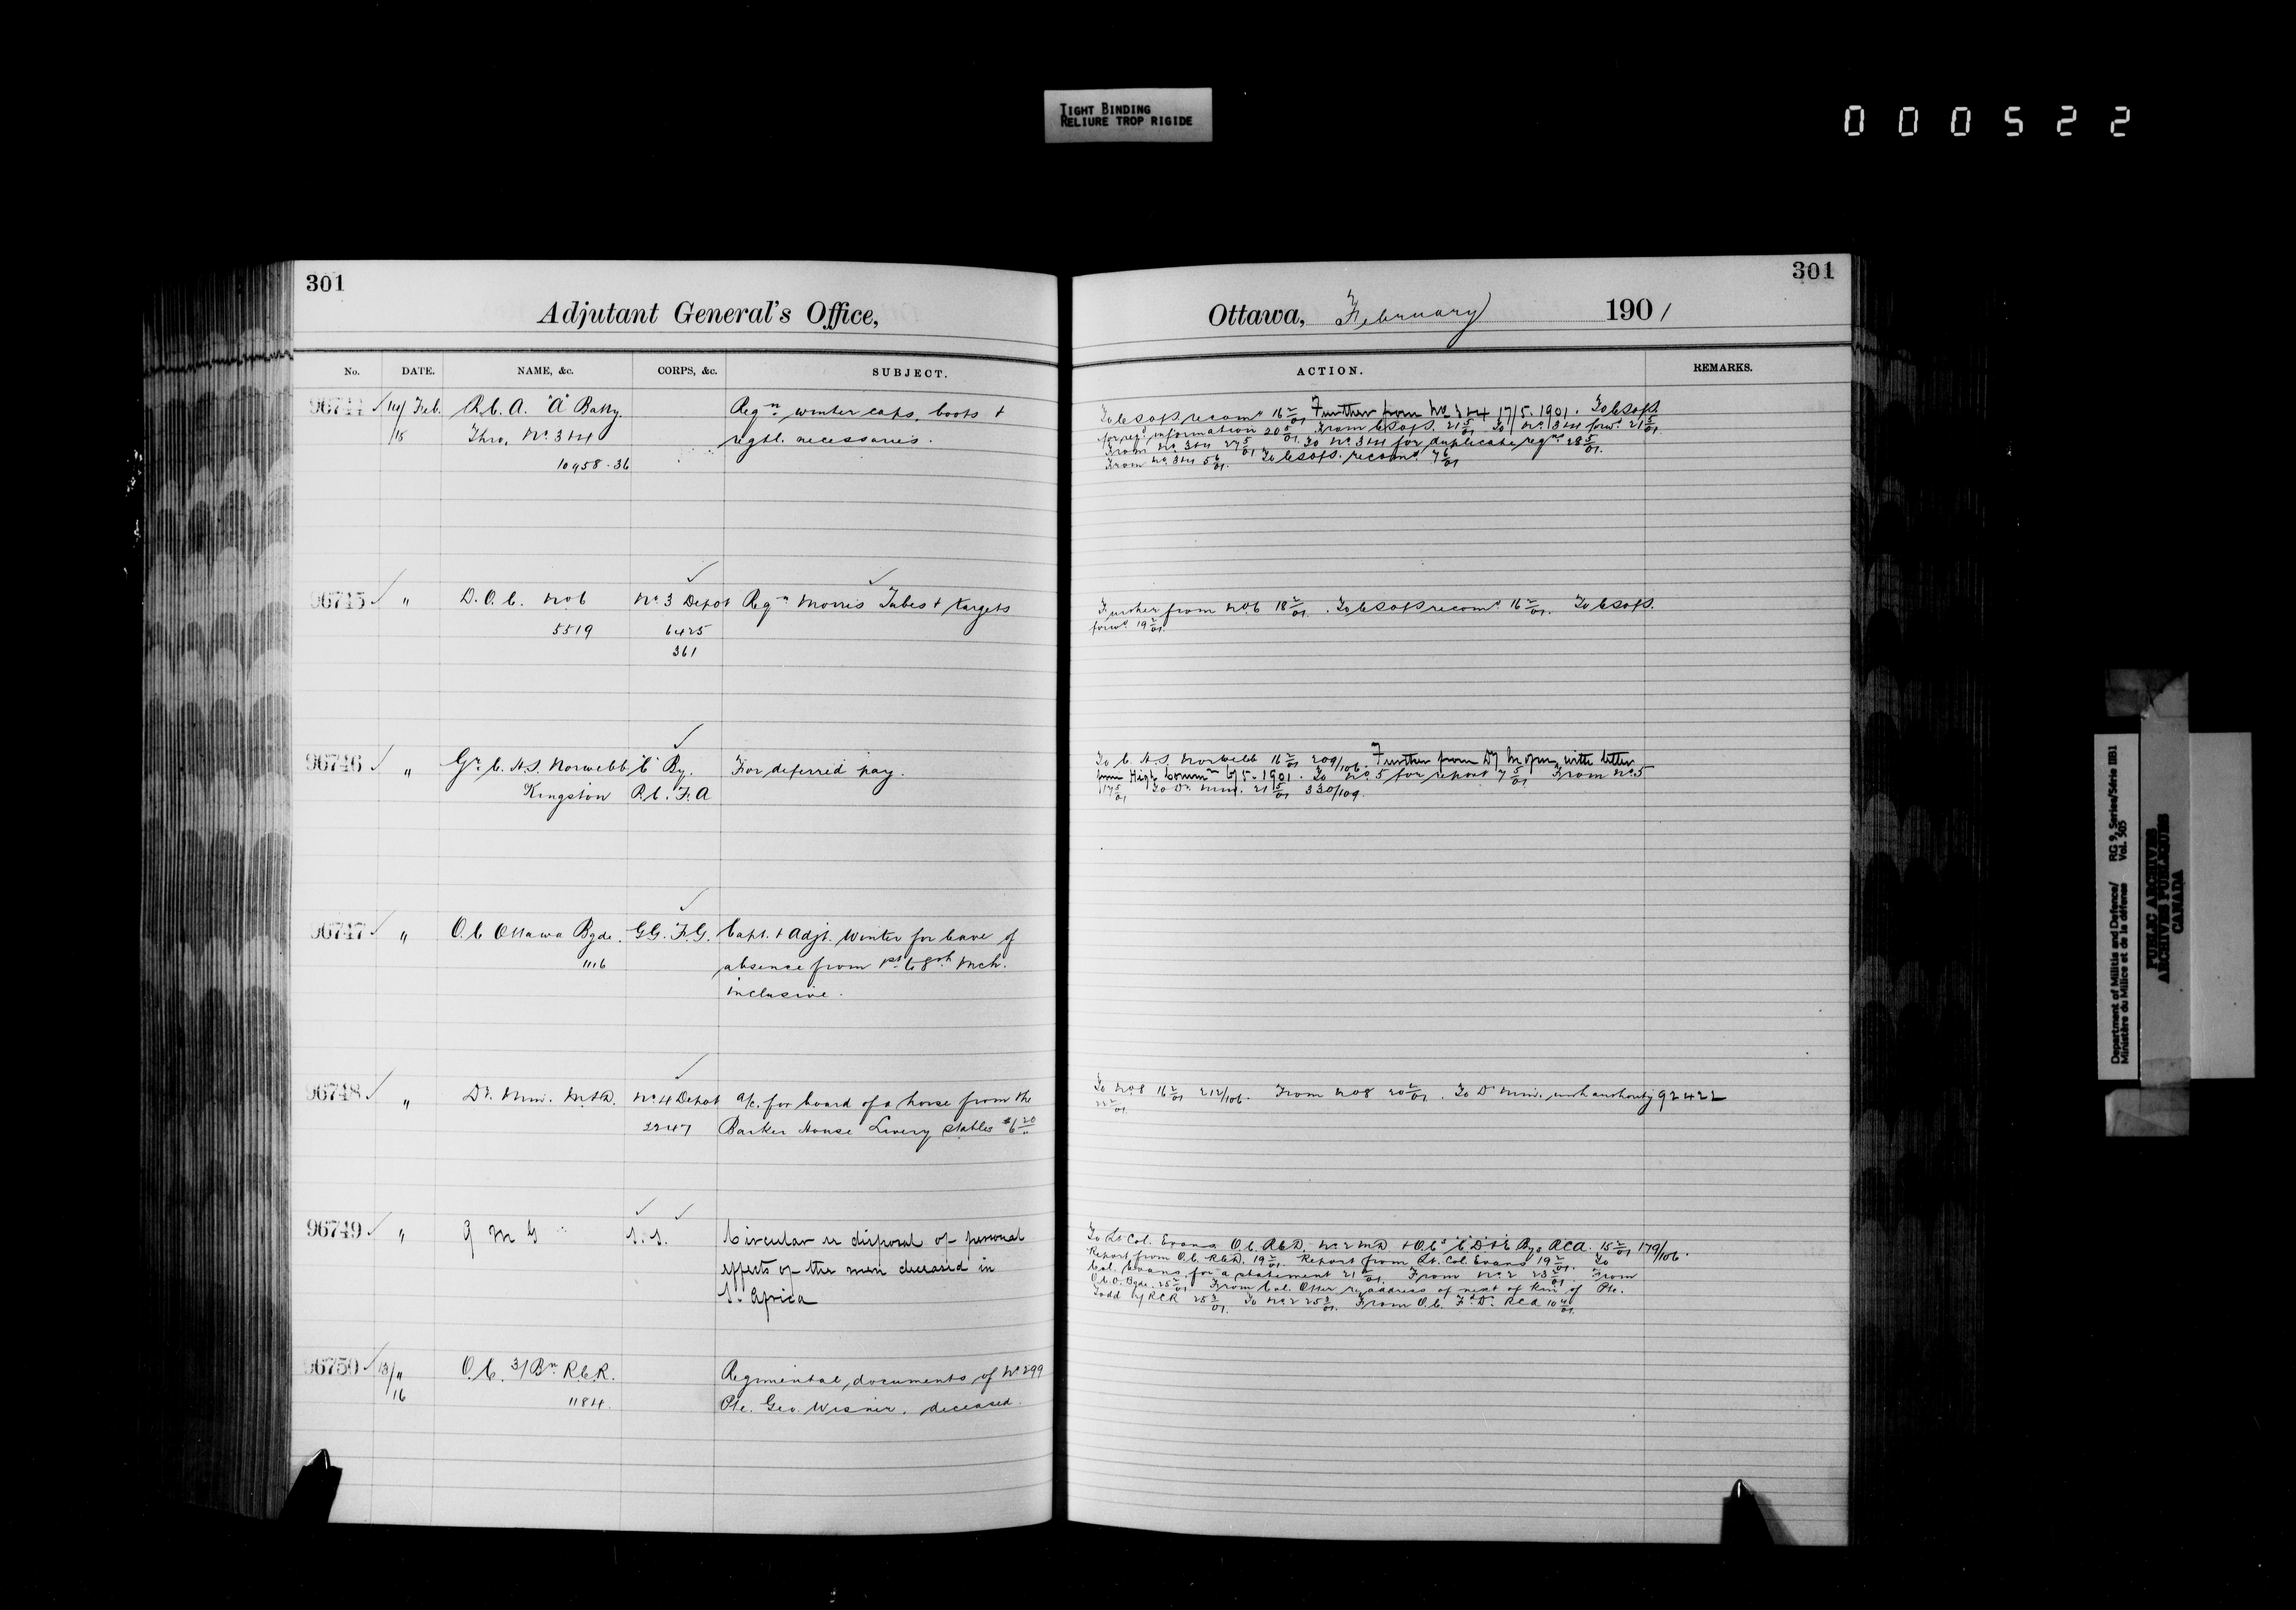 TIGHT BINDING
RELIURE TROP RIGIDE
000522
301
Adjutant General's Office,
No. DATE. NAME, &c. CORPS, &c. SUBJECT.
96744 14/ Feb. R.C.A. "A" Batty. Reqn. winter caps, boots &
/15 Thro. No. 3 & 4 regtl. necessaries.
10958-36
96745 " D.O.C. No 6 No. 3 Depot Reqn Morris Tubes & Targets
5519 6425
361
96746 " Gr. C. H. S. Norwebb "C" By. For deferred pay.
Kingston R.C.F.A
96747 " O.C Ottawa Bgde. G.G.F.G. Capt. & Adjt. Winter for leave of
1116 absence from 1st to 8th Mch.
inclusive.
96748 " Dr. Min. M&D. No. 4 Depot a/c. for board of a horse from the
2247 Barker House Livery Stables $6 20
96749 " Q M G S.S. Circular re disposal of personal
effects of the men deceased in
S. Africa
96750 13/ " O.C. 3/Bn R.C.R. Regimental documents of No 299
16 1184 Pte. Geo. Wisner. deceased.
301
Ottawa, February 1901
ACTION. REMARKS.
To CSofS recomd 16 2/01 Further from No 3&4 17/5.1901. To CSofS.
for reqd information 20 5/01. From CSofS. 21 5/01 To No. 3&4 forwd 21 5/01.
From No. 3&4 27 5/01 To No. 3&4 for duplicate reqn 28 5/01.
From No. 3&4 5 6/01. To CSofS. recomd 7 6/01
Further from No 6 18 2/01. To CSofS recomd 16 2/01. To CSofS.
forwd 19 2/01.
To C. H. S Norwebb 16 2/01 209/106. Further from with letter
from High Commr 6/5-1901. To No. 5 for report 7 5/01 From No. 5
17 5/01 To Dr. Min. 21 5/01 330/109.
To No 8 16 2/01 212/106. From No 8 20 2/01. To Dr Min. with authority 92422
22 2/01.
To Lt Col. Evans O.C. R&D, No. 2 MD & O.Cs "C" D & E Bys RCA. 15 2/01 179/106.
Report from O.C. R&D. 19 2/01. Report from Lt. Col. Evans 19 2/01. To
Col. Evans for a statement 21 2/01. From No. 2 23 2/01. From
O.C.O. Bgde. 25 2/01 From Col. Otter re address of next of kin of Pte.
Todd of RCR 25 3/01. To No. 2 25 3/01. From O.C. Fd Dn. RCA 10 4/01.
Department of Militia and Defence/ RG 9, Series/Série IIB1
Ministère du Milice et de la défense Vol. 505
PUBLIC ARCHIVES
ARCHIVES PUBLIQUES
CANADA